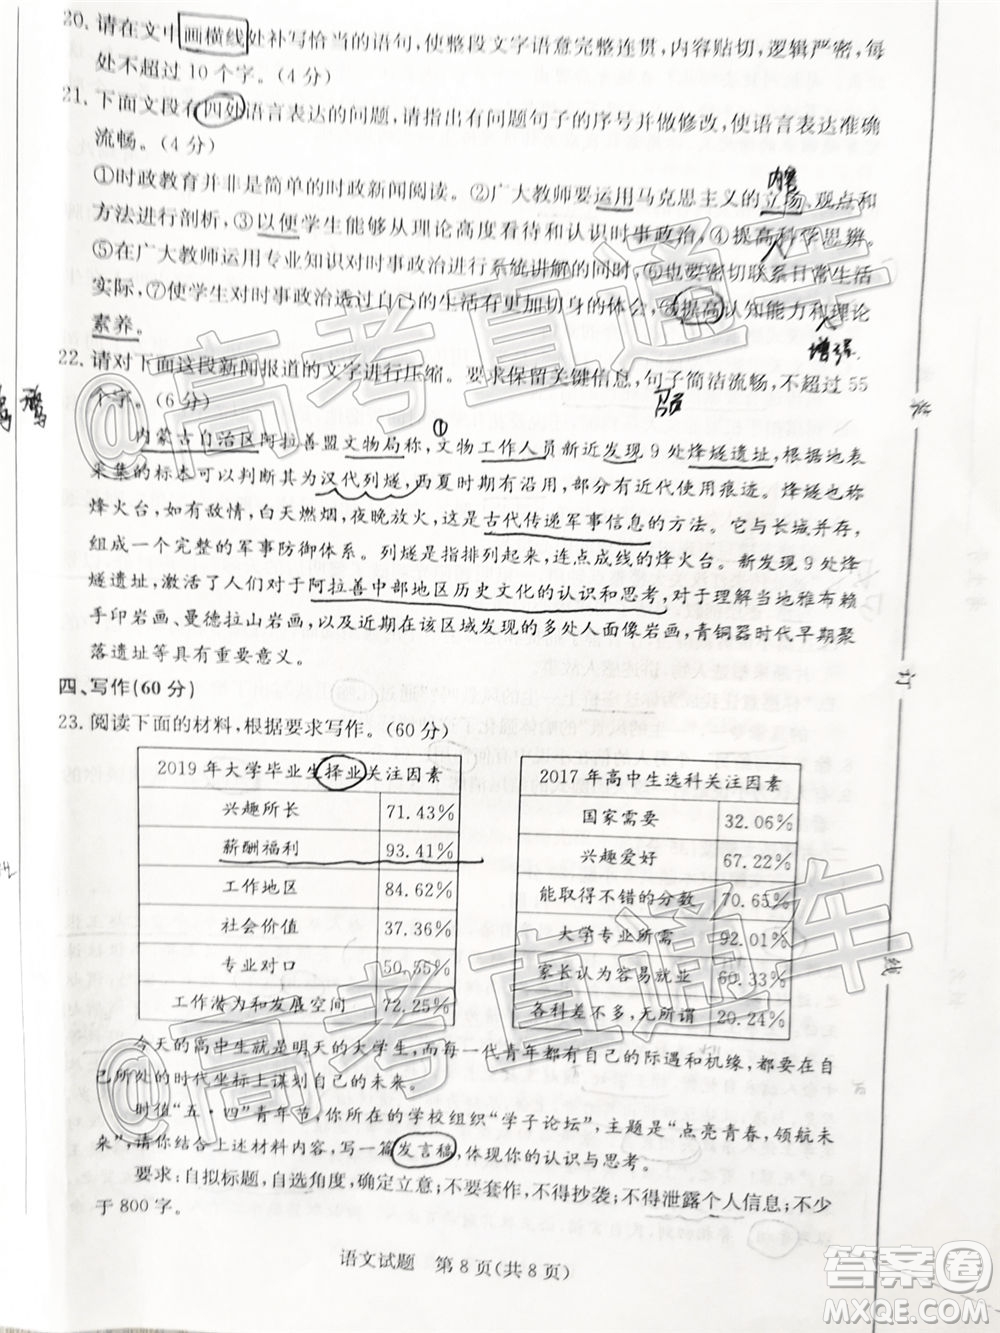 20. 请在文中画横线处补写恰当的语句,使整段文字语意完整连贯,内容贴切,逻辑严密,每
处不超过10个字。(4分)
21. 下面文段有四处语言表达的问题,请指出有问题句子的序号并做修改,使语言表达准确
流畅。(4分)
①时政教育并非是简单的时政新闻阅读。②广大教师要运用马克思主义的立场、观点和
方法进行剖析,③以便学生能够从理论高度看待和认识时事政治,④提高科学思辨。
⑤在广大教师运用专业知识对时事政治进行系统讲解的同时,⑥也要密切联系日常生活
实际,⑦使学生对时事政治有更加切身的体会,⑧提高认知能力和理论
素养。
增强
22. 请对下面这段新闻报道的文字进行压缩。要求保留关键信息,句子简洁流畅,不超过55
个字。(6分)
①
内蒙古自治区阿拉善盟文物局称,文物工作人员新近发现9处烽燧遗址,根据地表
采集的标本可以判断其为汉代列燧,西夏时期有沿用,部分有近现代使用痕迹。烽燧也称
烽火台。如有敌情,白天燃烟,夜晚放火,这是古代传递军事信息的方法。它与长城并存,
组成一个完整的军事防御体系。列燧是指排列起来,连点成线的烽火台。新发现的9处烽
燧遗址,激活了人们对于阿拉善中部地区历史文化的认识和思考,对于理解当地雅布赖
手印岩画、曼德拉山岩画,以及近期在该区域发现的多处人面像岩画,青铜器时代早期聚
落遗址等具有重要意义。
四、写作(60分)
23. 阅读下面的材料,根据要求写作。(60分)
2019年大学毕业生择业关注因素
兴趣所长 71.43%
薪酬福利 93.41%
工作地区 84.62%
社会价值 37.36%
专业对口 50.55%
工作潜力和发展空间 72.25%
2017年高中生选科关注因素
国家需要 32.06%
兴趣爱好 67.22%
能取得不错的分数 70.65%
大学专业所需 92.01%
家长认为容易就业 60.33%
各科差不多,无所谓 20.24%
今天的高中生就是明天的大学生,而每一代青年都有自己的际遇和机缘,都要在自
己所处的时代坐标上谋划自己的未来。
时值“五·四”青年节,你所在的学校组织“学子论坛”,主题是“点亮青春,领航未
来”,请你结合上述材料内容,写一篇发言稿,体现你的认识与思考。
要求:自拟标题,自选角度,确定立意;不要套作,不得抄袭;不得泄露个人信息;不少
于800字。
语文试题 第8页(共8页)
装
订
线
@高考直通车
@高考直通车
答案圈
MXQE.COM